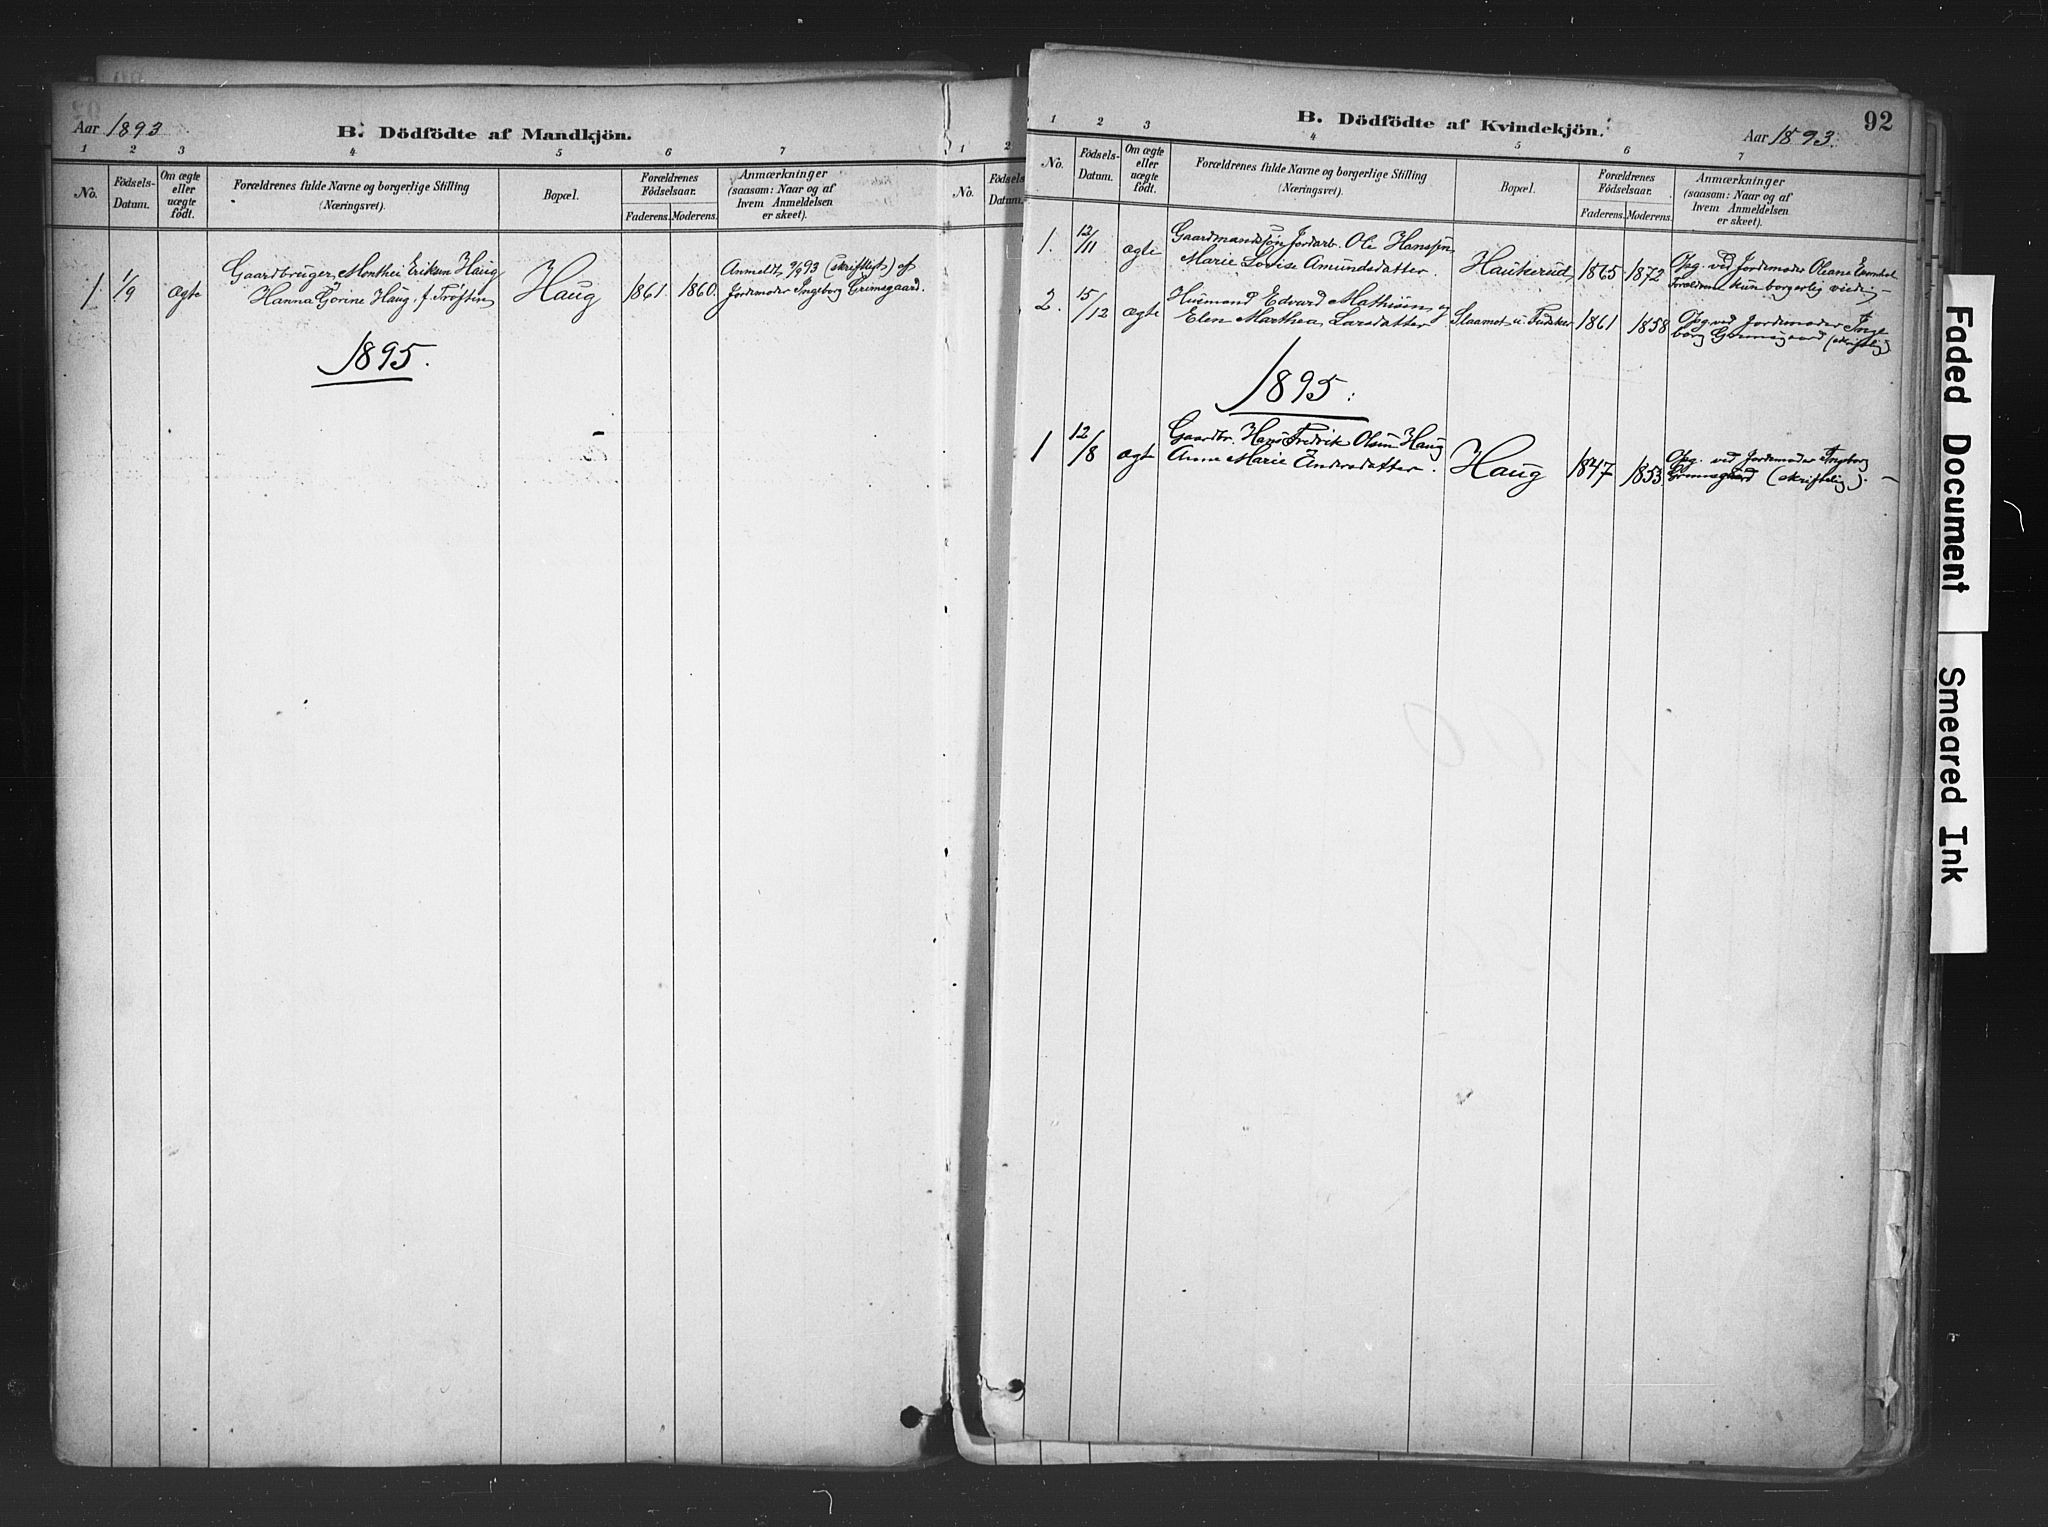 Aar 1893
B. Dödfödte af Mandkjön.
1 2 3 4 5 6 7
No. Födsels-Datum. Om ægte eller uægte født. Forældrenes fulde Navne og borgerlige Stilling (Næringsvei). Bopæl. Forældrenes Födselsaar. Faderens. Moderens. Anmærkninger (saasom: Naar og af hvem Anmeldelsen er skeet).
1 2
No. Födsels Datum.
1. 1/9 ægte Gaardbruger Monthei Eriksen Haug Haug 1861. 1860. Anmeldt 9/9 93 (skriftligt) af
Hanna Gorine Haug, f. Trøften Jordemoder Ingeborg Grimsgaard.
1895.
92
B. Dödfödte af Kvindekjön.
Aar 1893.
1 2 3 4 5 6 7
No. Födsels-Datum. Om ægte eller uægte födt. Forældrenes fulde Navne og borgerlige Stilling (Næringsvei). Bopæl. Forældrenes Födselsaar. Faderens. Moderens. Anmærkninger (saasom: Naar og af hvem Anmeldelsen er skeet).
1. 12/11 ægte Gaardmandssøn Jordarb. Ole Hanssen Haukerud 1865 1872 Opg. ved Jordemoder Oleane
Marie Lovise Amundsdatter. Forældrene kun borgerlig viede
2. 15/12 ægte Husmand Edvard Mathisen og Slaamot u. 1861 1858 Opg. ved Jordemoder Inge
Elen Marthea Larsdatter borg Grimsgaard (skriftlig)
1895.
1 12/8 ægt Gaardbr. Hans Fredrik Olsen Haug Haug 1847 1853 Opg. ved Jordemoder Ingborg
Anne Marie Andersdatter. Grimsgaard (skriftlig).
Faded Document
Smeared Ink